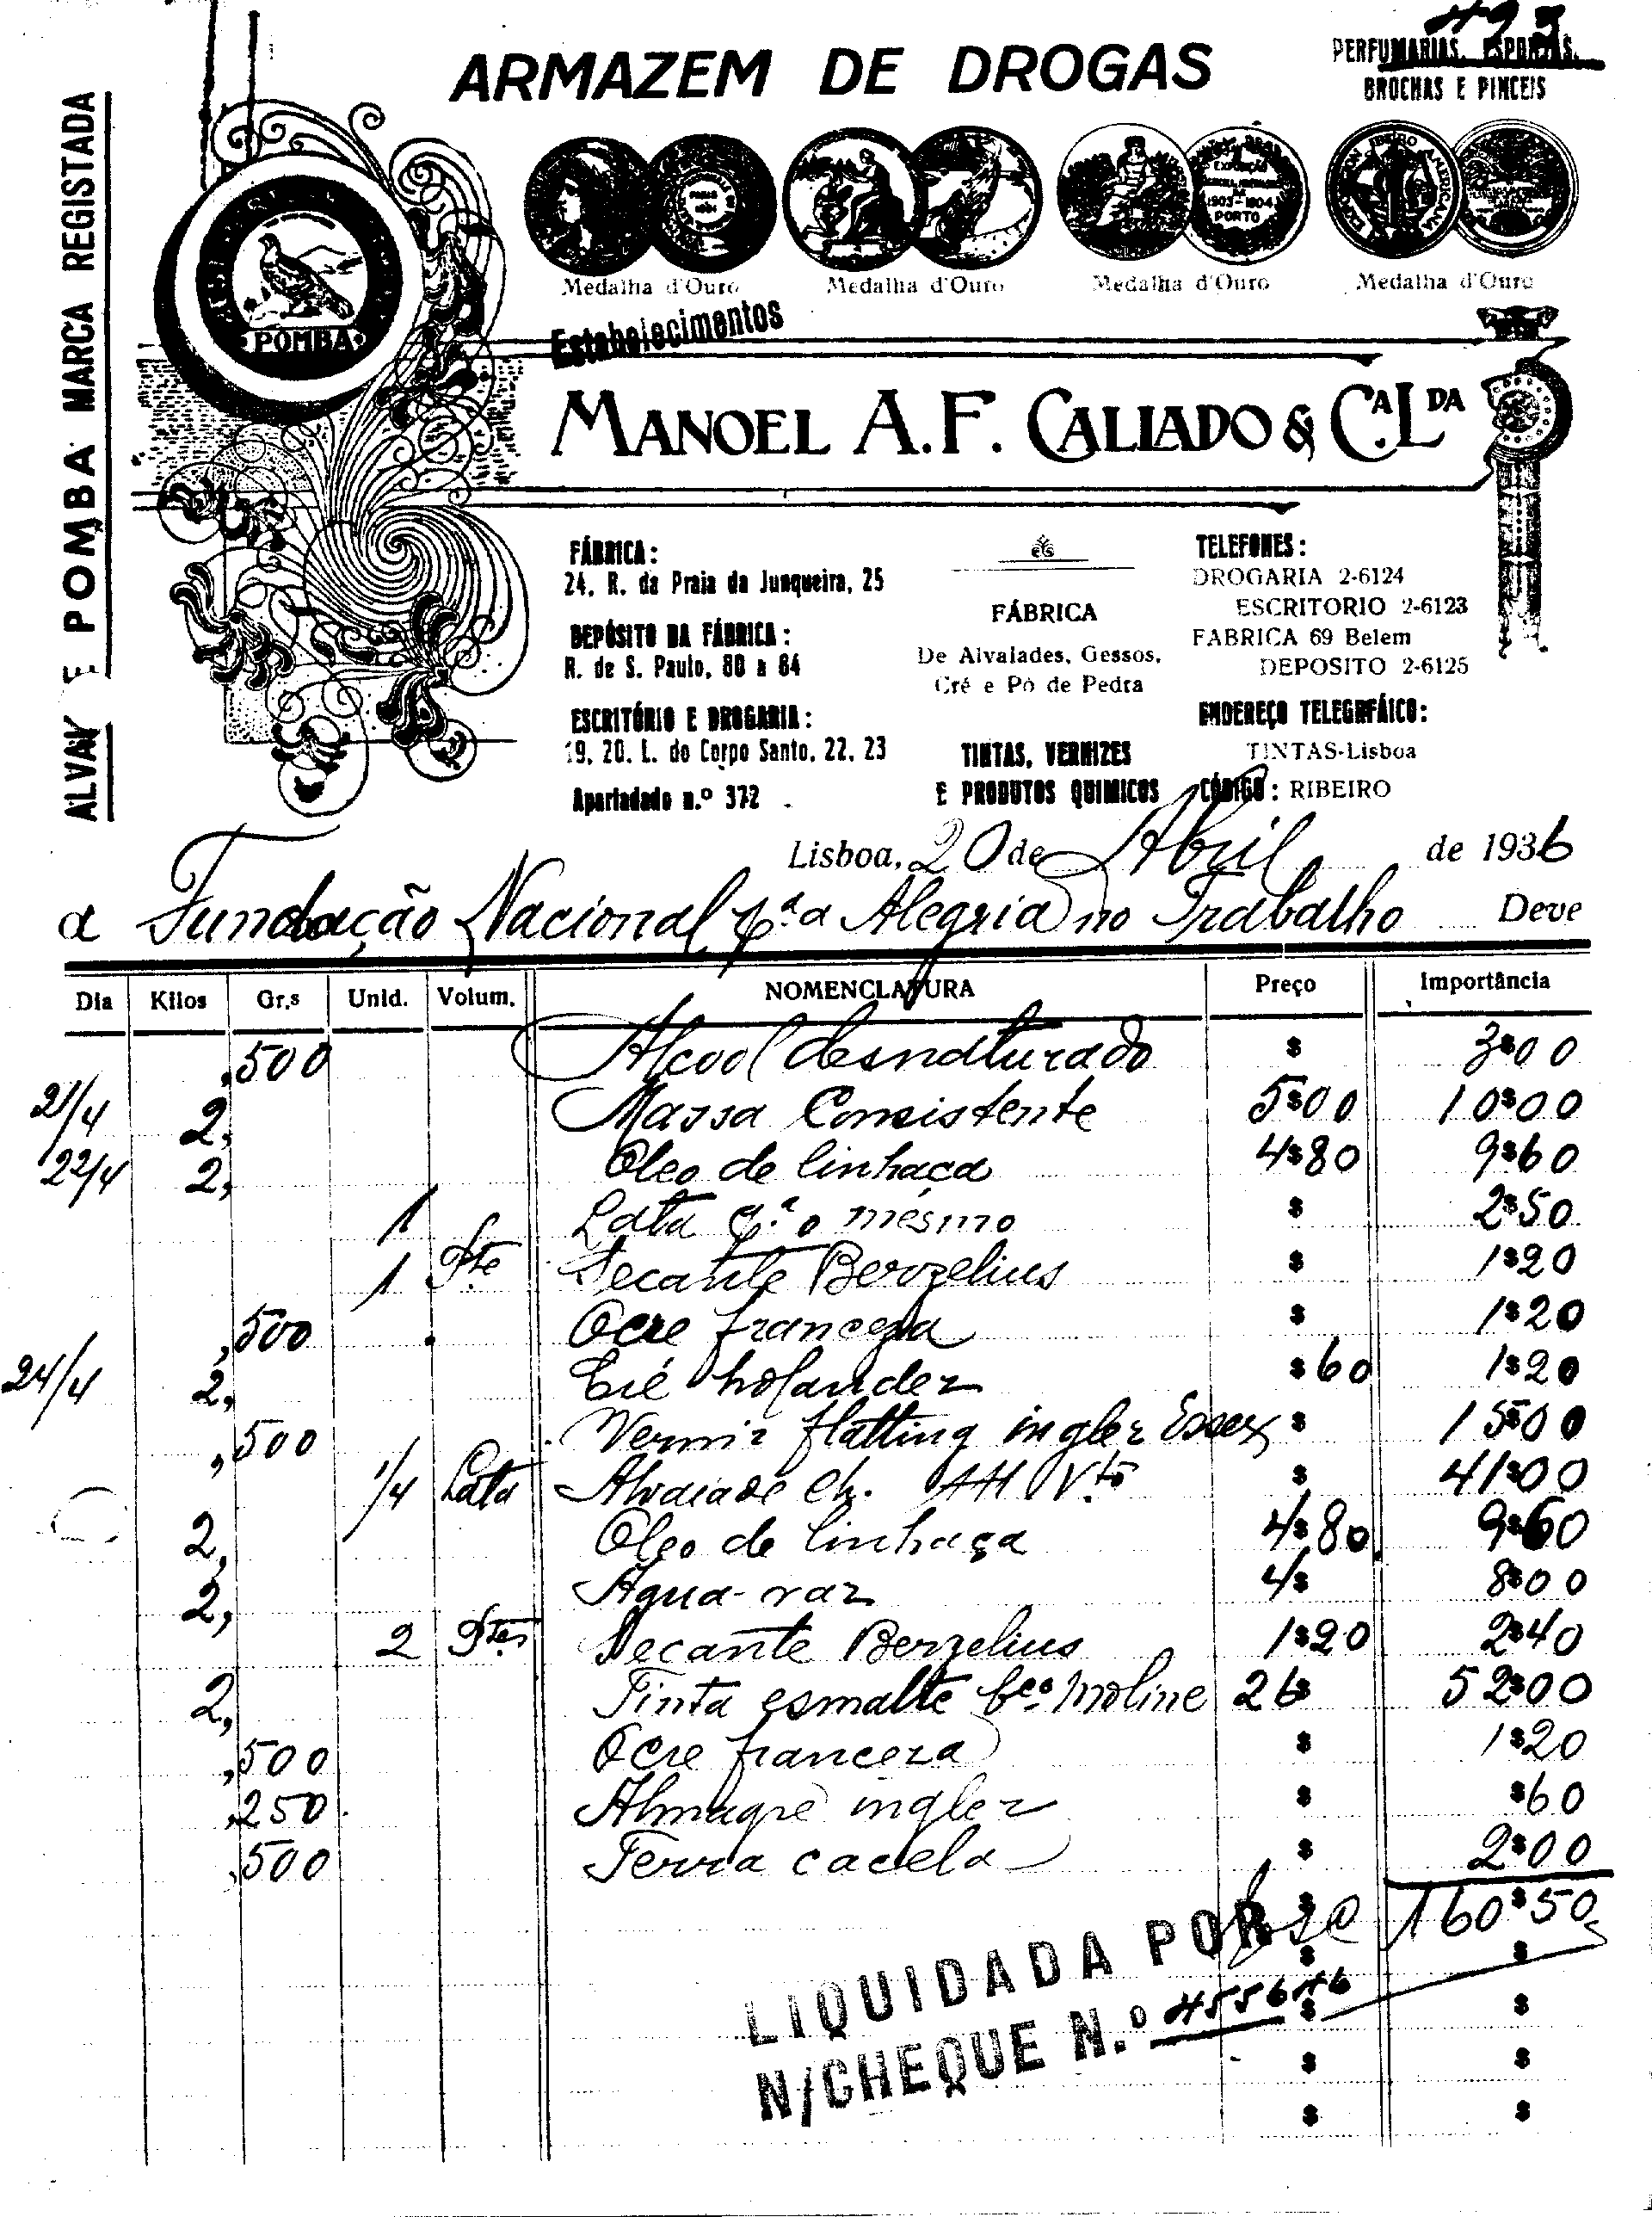 493
PERFUMARIAS, ESPONJAS,
BROCHAS E PINCEIS
ARMAZEM DE DROGAS
ALVAY E POMBA MARCA REGISTADA
POMBA
EXPOSIÇÃO
1903-1904
PORTO
Medalha d'Ouro Medalha d'Ouro Medalha d'Ouro Medalha d'Ouro
Estabelecimentos
MANOEL A. F. CALLADO & C.A L.DA
FÁBRICA:
24, R. da Praia da Junqueira, 25
DEPÓSITO DA FÁBRICA:
R. de S. Paulo, 80 a 84
ESCRITÓRIO E DROGARIA:
19, 20, L. do Corpo Santo, 22, 23
Apartadado n.º 372
FÁBRICA
De Alvaiades, Gessos,
Cré e Pó de Pedra
TINTAS, VERNIZES
E PRODUTOS QUIMICOS
TELEFONES:
DROGARIA 2-6124
ESCRITORIO 2-6123
FABRICA 69 Belem
DEPOSITO 2-6125
ENDEREÇO TELEGRFÁICO:
TINTAS-Lisboa
CÓDIGO: RIBEIRO
Lisboa, 20 de Abril de 1936
a Fundação Nacional p.ª a Alegria no Trabalho Deve
Dia Kilos Gr.s Unid. Volum. NOMENCLATURA Preço Importância
,500 Alcool desnaturado $ 3$00
21/4 2, Massa Consistente 5$00 10$00
22/4 2, Oleo de linhaça 4$80 9$60
1 Lata p.ª o mesmo $ 2$50
1 Pte Secante Berzelius $ 1$20
,500 Ocre franceza $ 1$20
24/4 2, Cré holandez $60 1$20
,500 Verniz flatting inglez Essex $ 15$00
1/4 Lata Alvaiade Ch. AH V.to $ 41$00
2, Oleo de linhaça 4$80 9$60
2, Agua-raz 4$ 8$00
2 Ptes Secante Berzelius 1$20 2$40
2, Tinta esmalte bco Moline 26$ 52$00
,500 Ocre franceza $ 1$20
,250 Almagre inglez $ $60
,500 Terra cacela $ 2$00
160$50
LIQUIDADA POR
N/CHEQUE N.º 455646